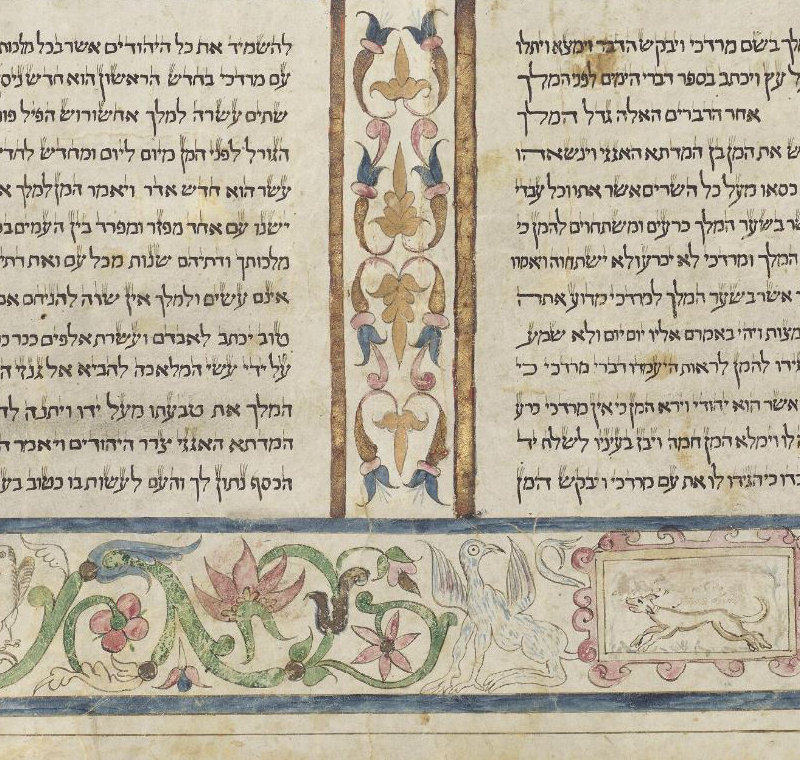 לך בשם מרדכי ויבקש הדבר וימצא ויתלו
ל עץ ויכתב בספר דברי הימים לפני המלך
אחר הדברים האלה גדל המלך
ש את המן בן המדתא האגגי וינשאהו
כסאו מעל כל השרים אשר אתו וכל עבדי
ר בשער המלך כרעים ומשתחוים להמן כי
המלך ומרדכי לא יכרע ולא ישתחוה ויאמרו
אשר בשער המלך למרדכי מדוע אתה
מצות ויהי באמרם אליו יום יום ולא שמע
ידו להמן לראות היעמדו דברי מרדכי כי
אשר הוא יהודי וירא המן כי אין מרדכי כרע
לו וימלא המן חמה ויבז בעיניו לשלח יד
בדו כי הגידו לו את עם מרדכי ויבקש המן
להשמיד את כל היהודים אשר בכל מלכות
עם מרדכי בחדש הראשון הוא חדש ניסן
שתים עשרה למלך אחשורוש הפיל פור
הגורל לפני המן מיום ליום ומחדש לחדש
עשר הוא חדש אדר ויאמר המן למלך א
ישנו עם אחד מפזר ומפרד בין העמים בכ
מלכותך ודתיהם שנות מכל עם ואת דתי
אינם עשים ולמלך אין שוה להניחם אם
טוב יכתב לאבדם ועשרת אלפים ככר כ
על ידי עשי המלאכה להביא אל גנזי ה
המלך את טבעתו מעל ידו ויתנה לה
המדתא האגגי צרר היהודים ויאמר ה
הכסף נתון לך והעם לעשות בו כטוב בע